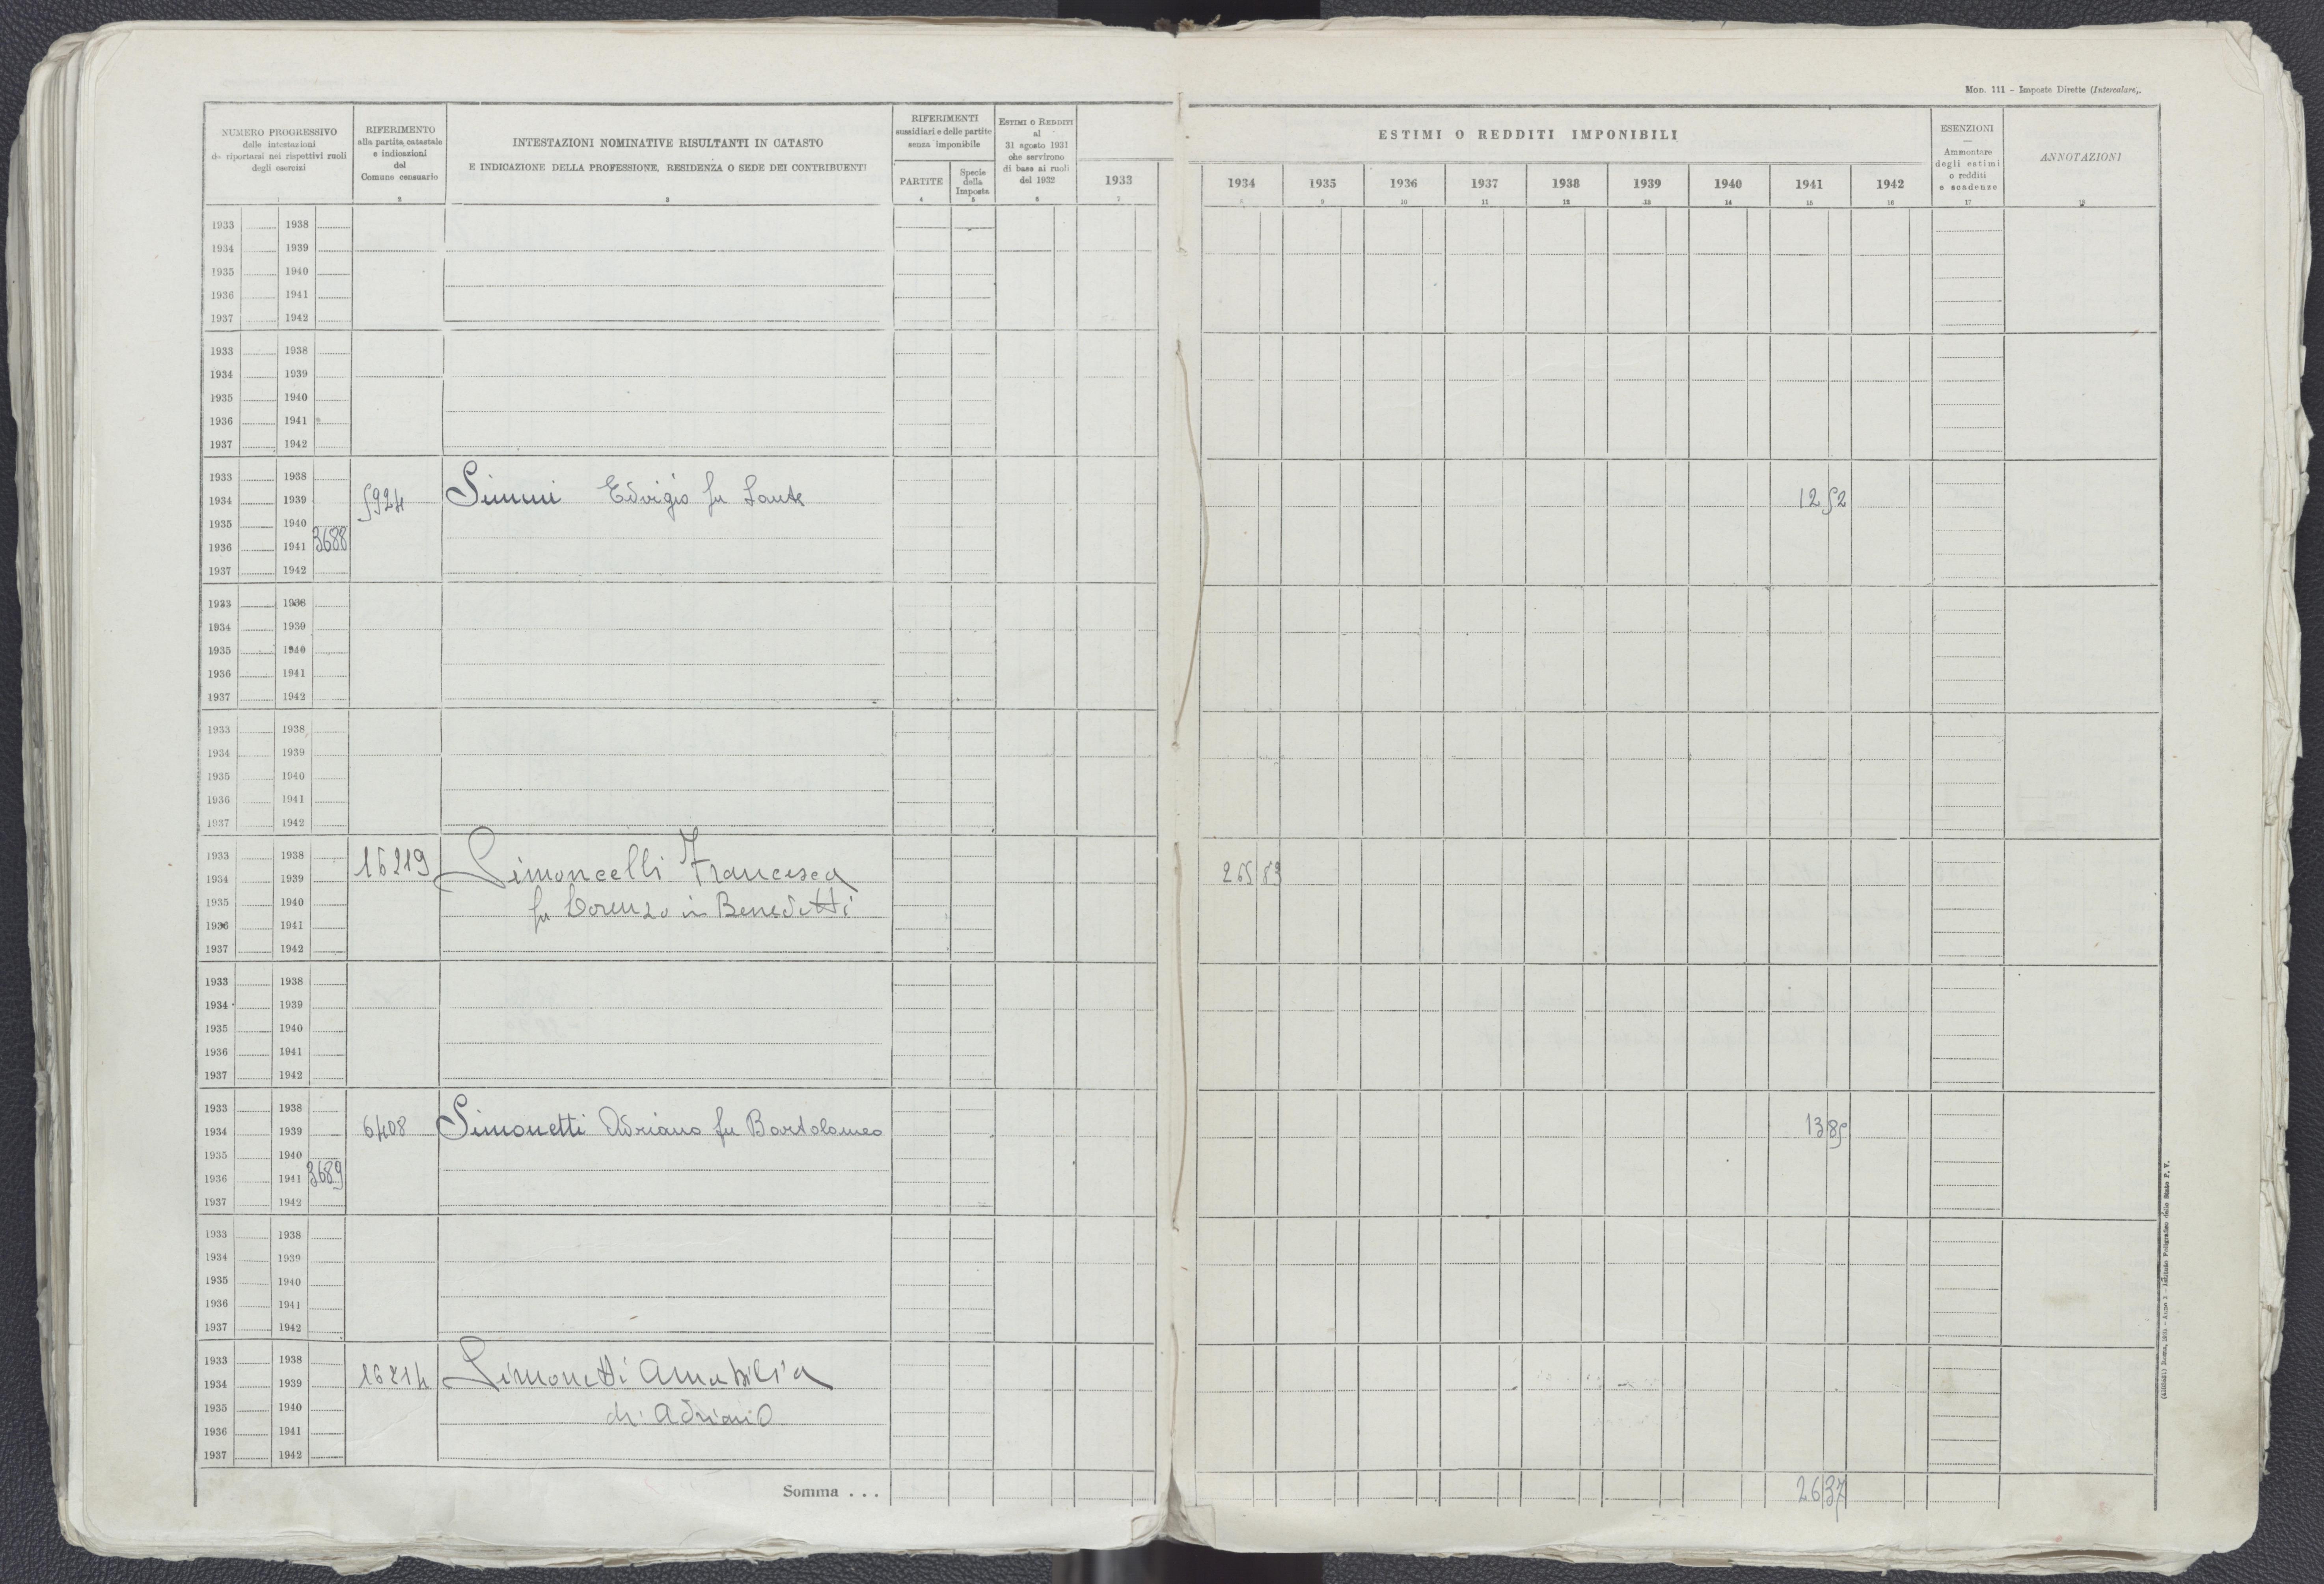 Mon. 111 - Imposte Dirette (Intercalare).
NUMERO PROGRESSIVO
delle intestazioni
da riportarsi nei rispettivi ruoli
degli esercizi
1
RIFERIMENTO
alla partita catastale
e indicazioni
del
Comune censuario
2
INTESTAZIONI NOMINATIVE RISULTANTI IN CATASTO
E INDICAZIONE DELLA PROFESSIONE, RESIDENZA O SEDE DEI CONTRIBUENTI
3
RIFERIMENTI
sussidiari e delle partite
senza imponibile
PARTITE
4
Specie
della
Imposta
5
ESTIMI O REDDITI
al
31 agosto 1931
che servirono
di base ai ruoli
del 1932
6
ESTIMI O REDDITI IMPONIBILI
1933 1934 1935 1936 1937 1938 1939 1940 1941 1942
7 8 9 10 11 12 13 14 15 16
ESENZIONI
—
Ammontare
degli estimi
o redditi
e scadenze
17
ANNOTAZIONI
18
1933 1938
1934 1939
1935 1940
1936 1941
1937 1942
1933 1938
1934 1939
1935 1940
1936 1941
1937 1942
1933 1938
1934 1939 5924 Simmi Edvigio fu Sante 12 52
1935 1940
1936 1941 3688
1937 1942
1933 1938
1934 1939
1935 1940
1936 1941
1937 1942
1933 1938
1934 1939
1935 1940
1936 1941
1937 1942
1933 1938 16219 Simoncelli Francesca 265 83
1934 1939
1935 1940 fu Lorenzo in Benedetti
1936 1941
1937 1942
1933 1938
1934 1939
1935 1940
1936 1941
1937 1942
1933 1938
1934 1939 6408 Simonetti Adriano fu Bartolomeo 13 85
1935 1940
1936 1941 3689
1937 1942
1933 1938
1934 1939
1935 1940
1936 1941
1937 1942
1933 1938
1934 1939 16214 Simonetti Amabilia
1935 1940 di Adriano
1936 1941
1937 1942
Somma . . . 26 37